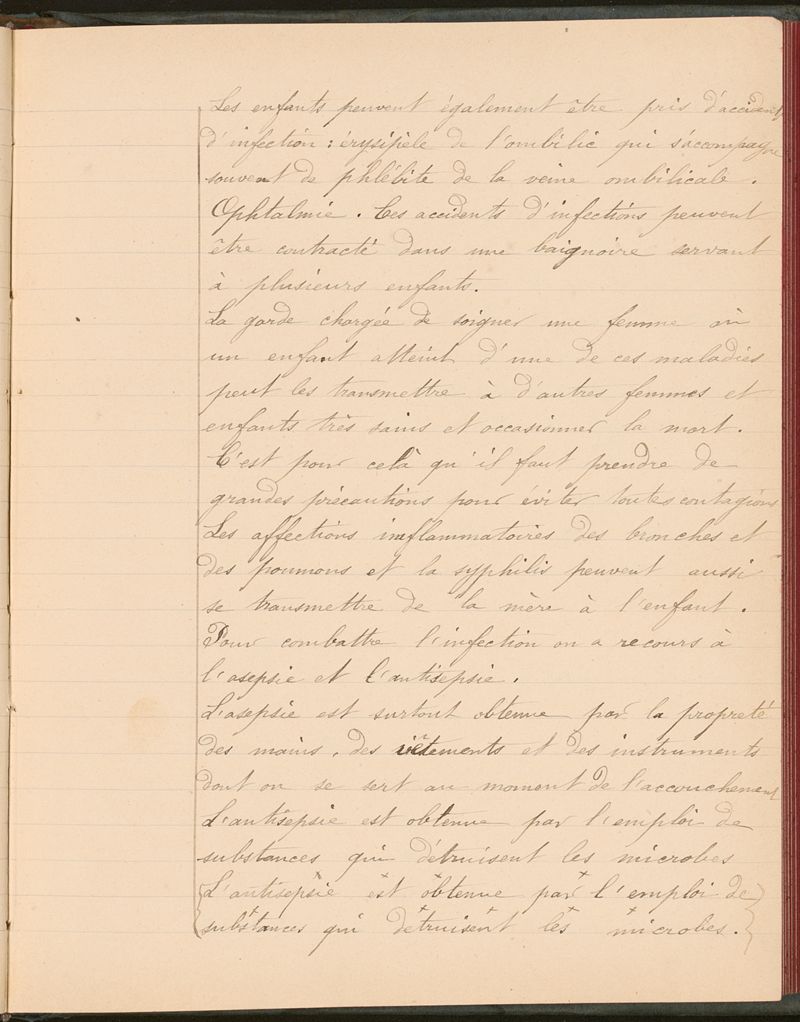 Les enfants peuvent également être pris d'accidents
d'infection : érysipèle de l'ombilic qui s'accompagne
souvent de phlébite de la veine ombilicale.
Ophtalmie. Ces accidents d'infections peuvent
être contracté dans une baignoire servant
à plusieurs enfants.
La garde chargée de soigner une femme où
un enfant atteint d'une de ces maladies
peut les transmettre à d'autres femmes et
enfants très sains et occasionner la mort.
C'est pour celà qu'il faut prendre de
grandes précautions pour éviter toutes contagions
Les affections imflammatoires des bronches et
des poumons et la syphilis peuvent aussi
se transmettre de la mère à l'enfant.
Pour combattre l'infection on a recours à
l'asepsie et l'antisepsie.
L'asepsie est surtout obtenue par la propreté
des mains, des vêtements et des instruments
dont on se sert au moment de l'accouchement
L'antisepsie est obtenue par l'emploi de
substances qui détruisent les microbes
(L'antisepsie est obtenue par l'emploi de)
(substances qui détruisent les microbes.)